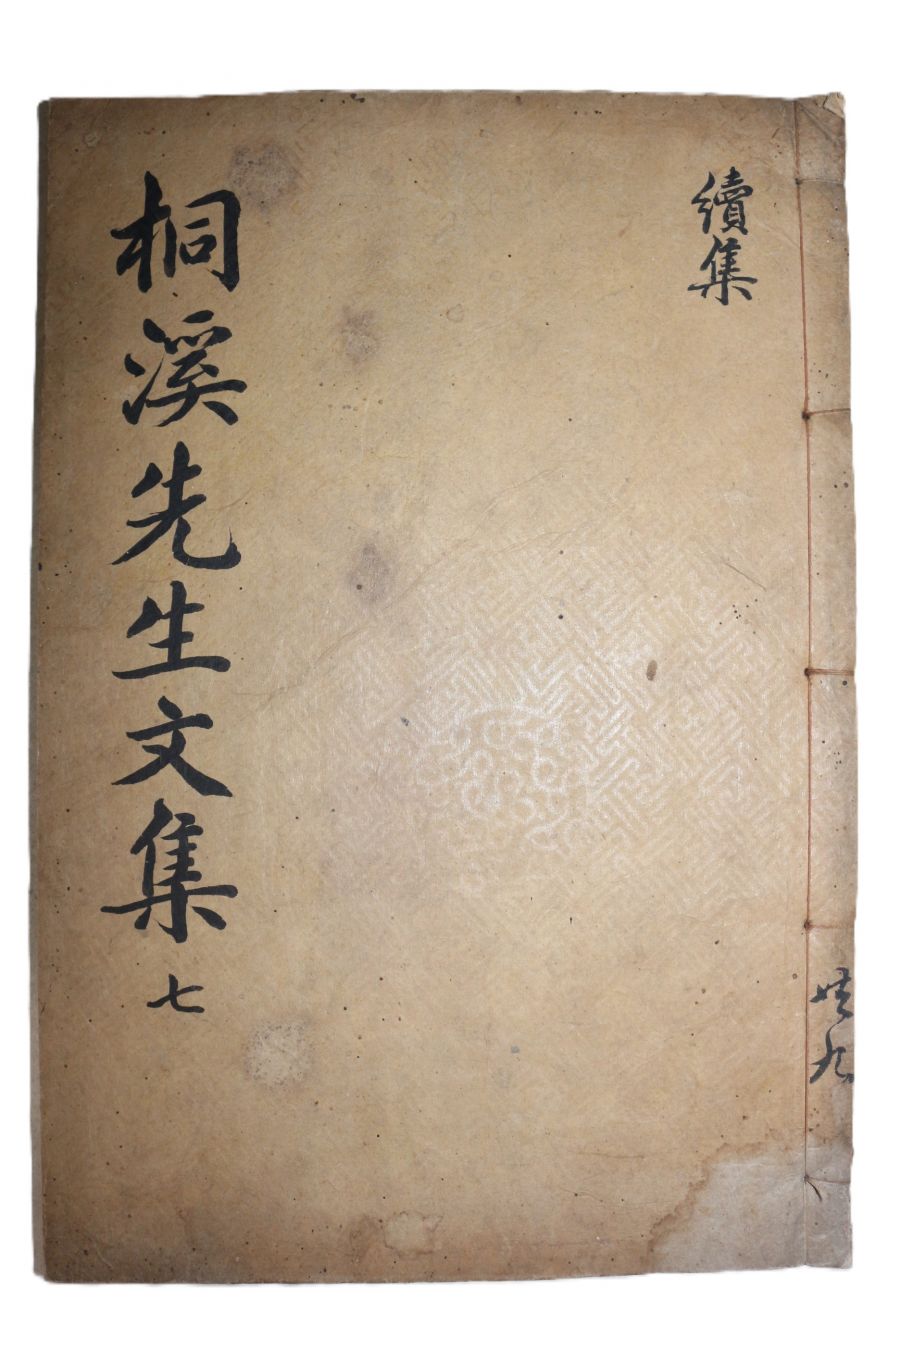 共九
續集
桐溪先生文集 七